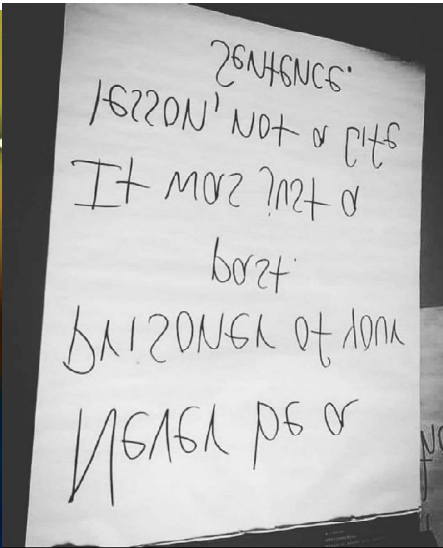 Never be a
prisoner of your
past.
It was just a
lesson, not a life
sentence.